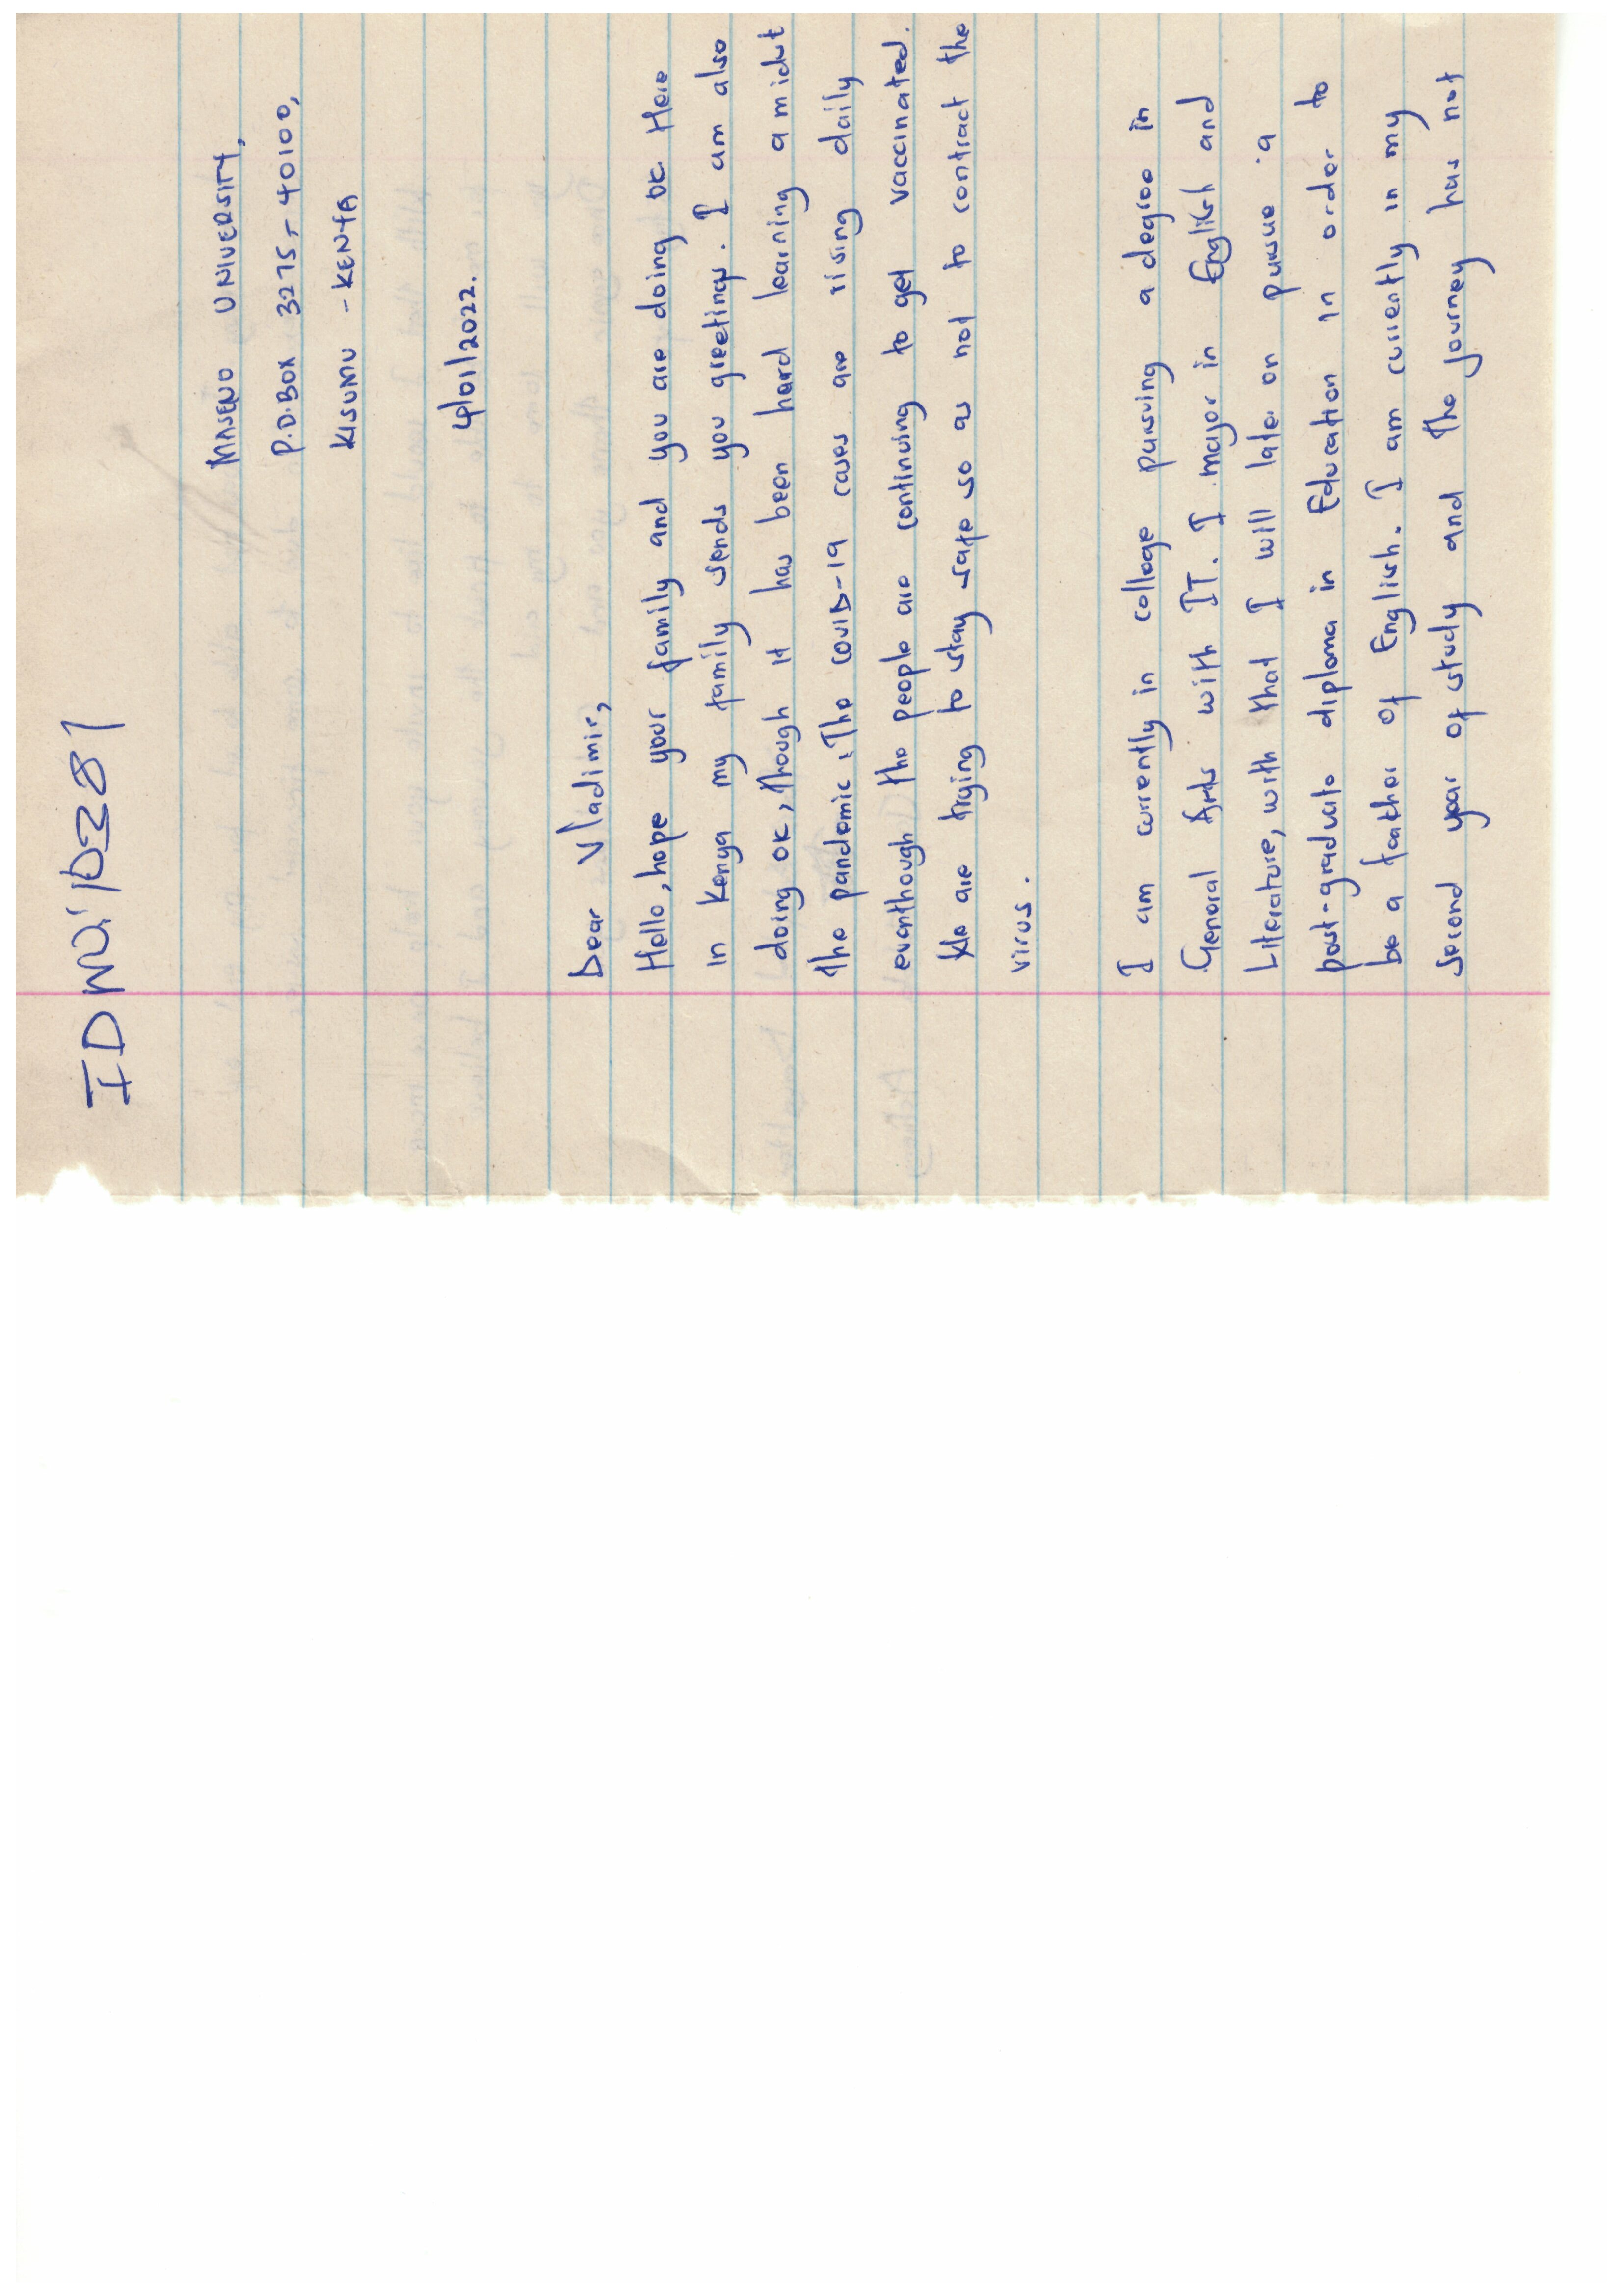 ID
MASENO UNIVERSITY,
P.O.BOX 3275,- 40100,
KISUMU - KENYA
4/01/2022.
Dear Vladimir,
Hello, hope your family and you are doing ok. Here
in Kenya my family sends you greetings. I am also
doing ok, though it has been hard learning amidst
the pandemic. The COVID-19 cases are rising daily
eventhough the people are continuing to get vaccinated.
We are trying to stay safe so as not to contract the
virus.
I am currently in college pursuing a degree in
General Arts with IT. I major in English and
Literature, with that I will later on pursue a
post-graduate diploma in Education in order to
be a teacher of English. I am currently in my
second year of study and the journey has not